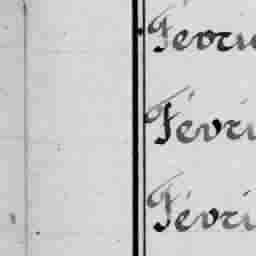 Févri
Févri
Févri